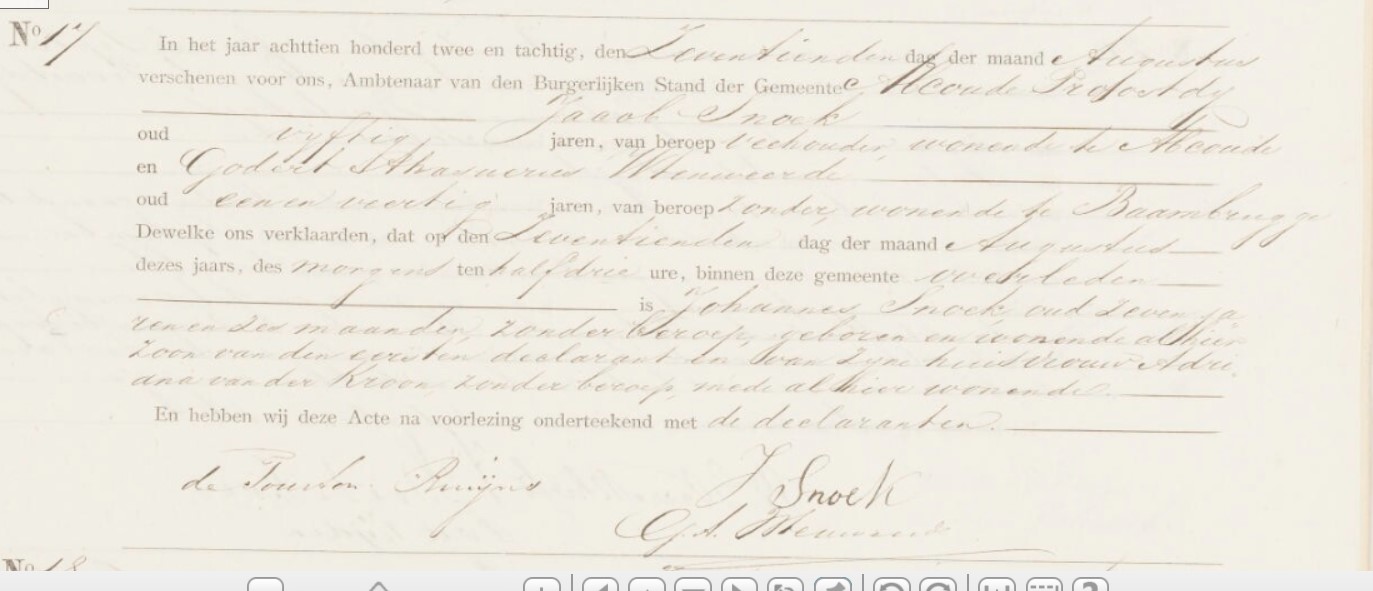 No 17
In het jaar achttien honderd twee en tachtig, den Zeventienden dag der maand Augustus
verschenen voor ons, Ambtenaar van den Burgerlijken Stand der Gemeente Abcoude Proostdy
Jacob Snoek
oud vyftig jaren, van beroep Veehouder, wonende te Abcoude
en Godert
oud een en veertig jaren, van beroep zonder, wonende te Baambrugge
Dewelke ons verklaarden, dat op den Zeventienden dag der maand Augustus
dezes jaars, des morgens ten half drie ure, binnen deze gemeente overleden
is Johannes Snoek, oud zeven ja
ren en zes maanden, zonder beroep, geboren en wonende alhier
zoon van den eersten declarant en van zyne huisvrouw Adri
ana van der Kroon, zonder beroep, mede alhier wonende.
En hebben wij deze Acte na voorlezing onderteekend met de declaranten.
de J Snoek
G. A.
No 18